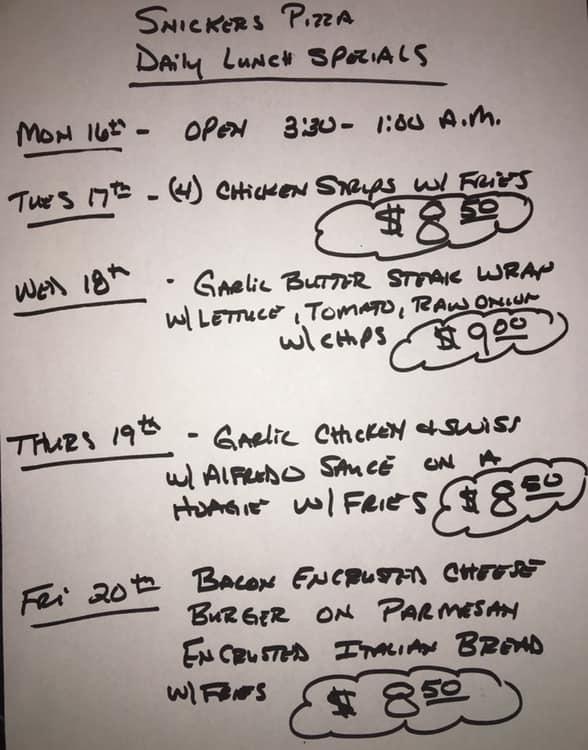 SNICKERS PIZZA
DAILY LUNCH SPECIALS
MON 16th - OPEN 3:30 - 1:00 A.M.
TUES 17th - (4) CHICKEN STRIPS W/ FRIES
$8.50
WED 18th - GARLIC BUTTER STEAK WRAP
W/ LETTUCE, TOMATO, RAW ONION
W/ CHIPS $9.00
THURS 19th - GARLIC CHICKEN & SWISS
W/ ALFREDO SAUCE ON A
HOAGIE W/ FRIES $8.50
FRI 20th BACON ENCRUSTED CHEESE
BURGER ON PARMESAN
ENCRUSTED ITALIAN BREAD
W/ FRIES $8.50